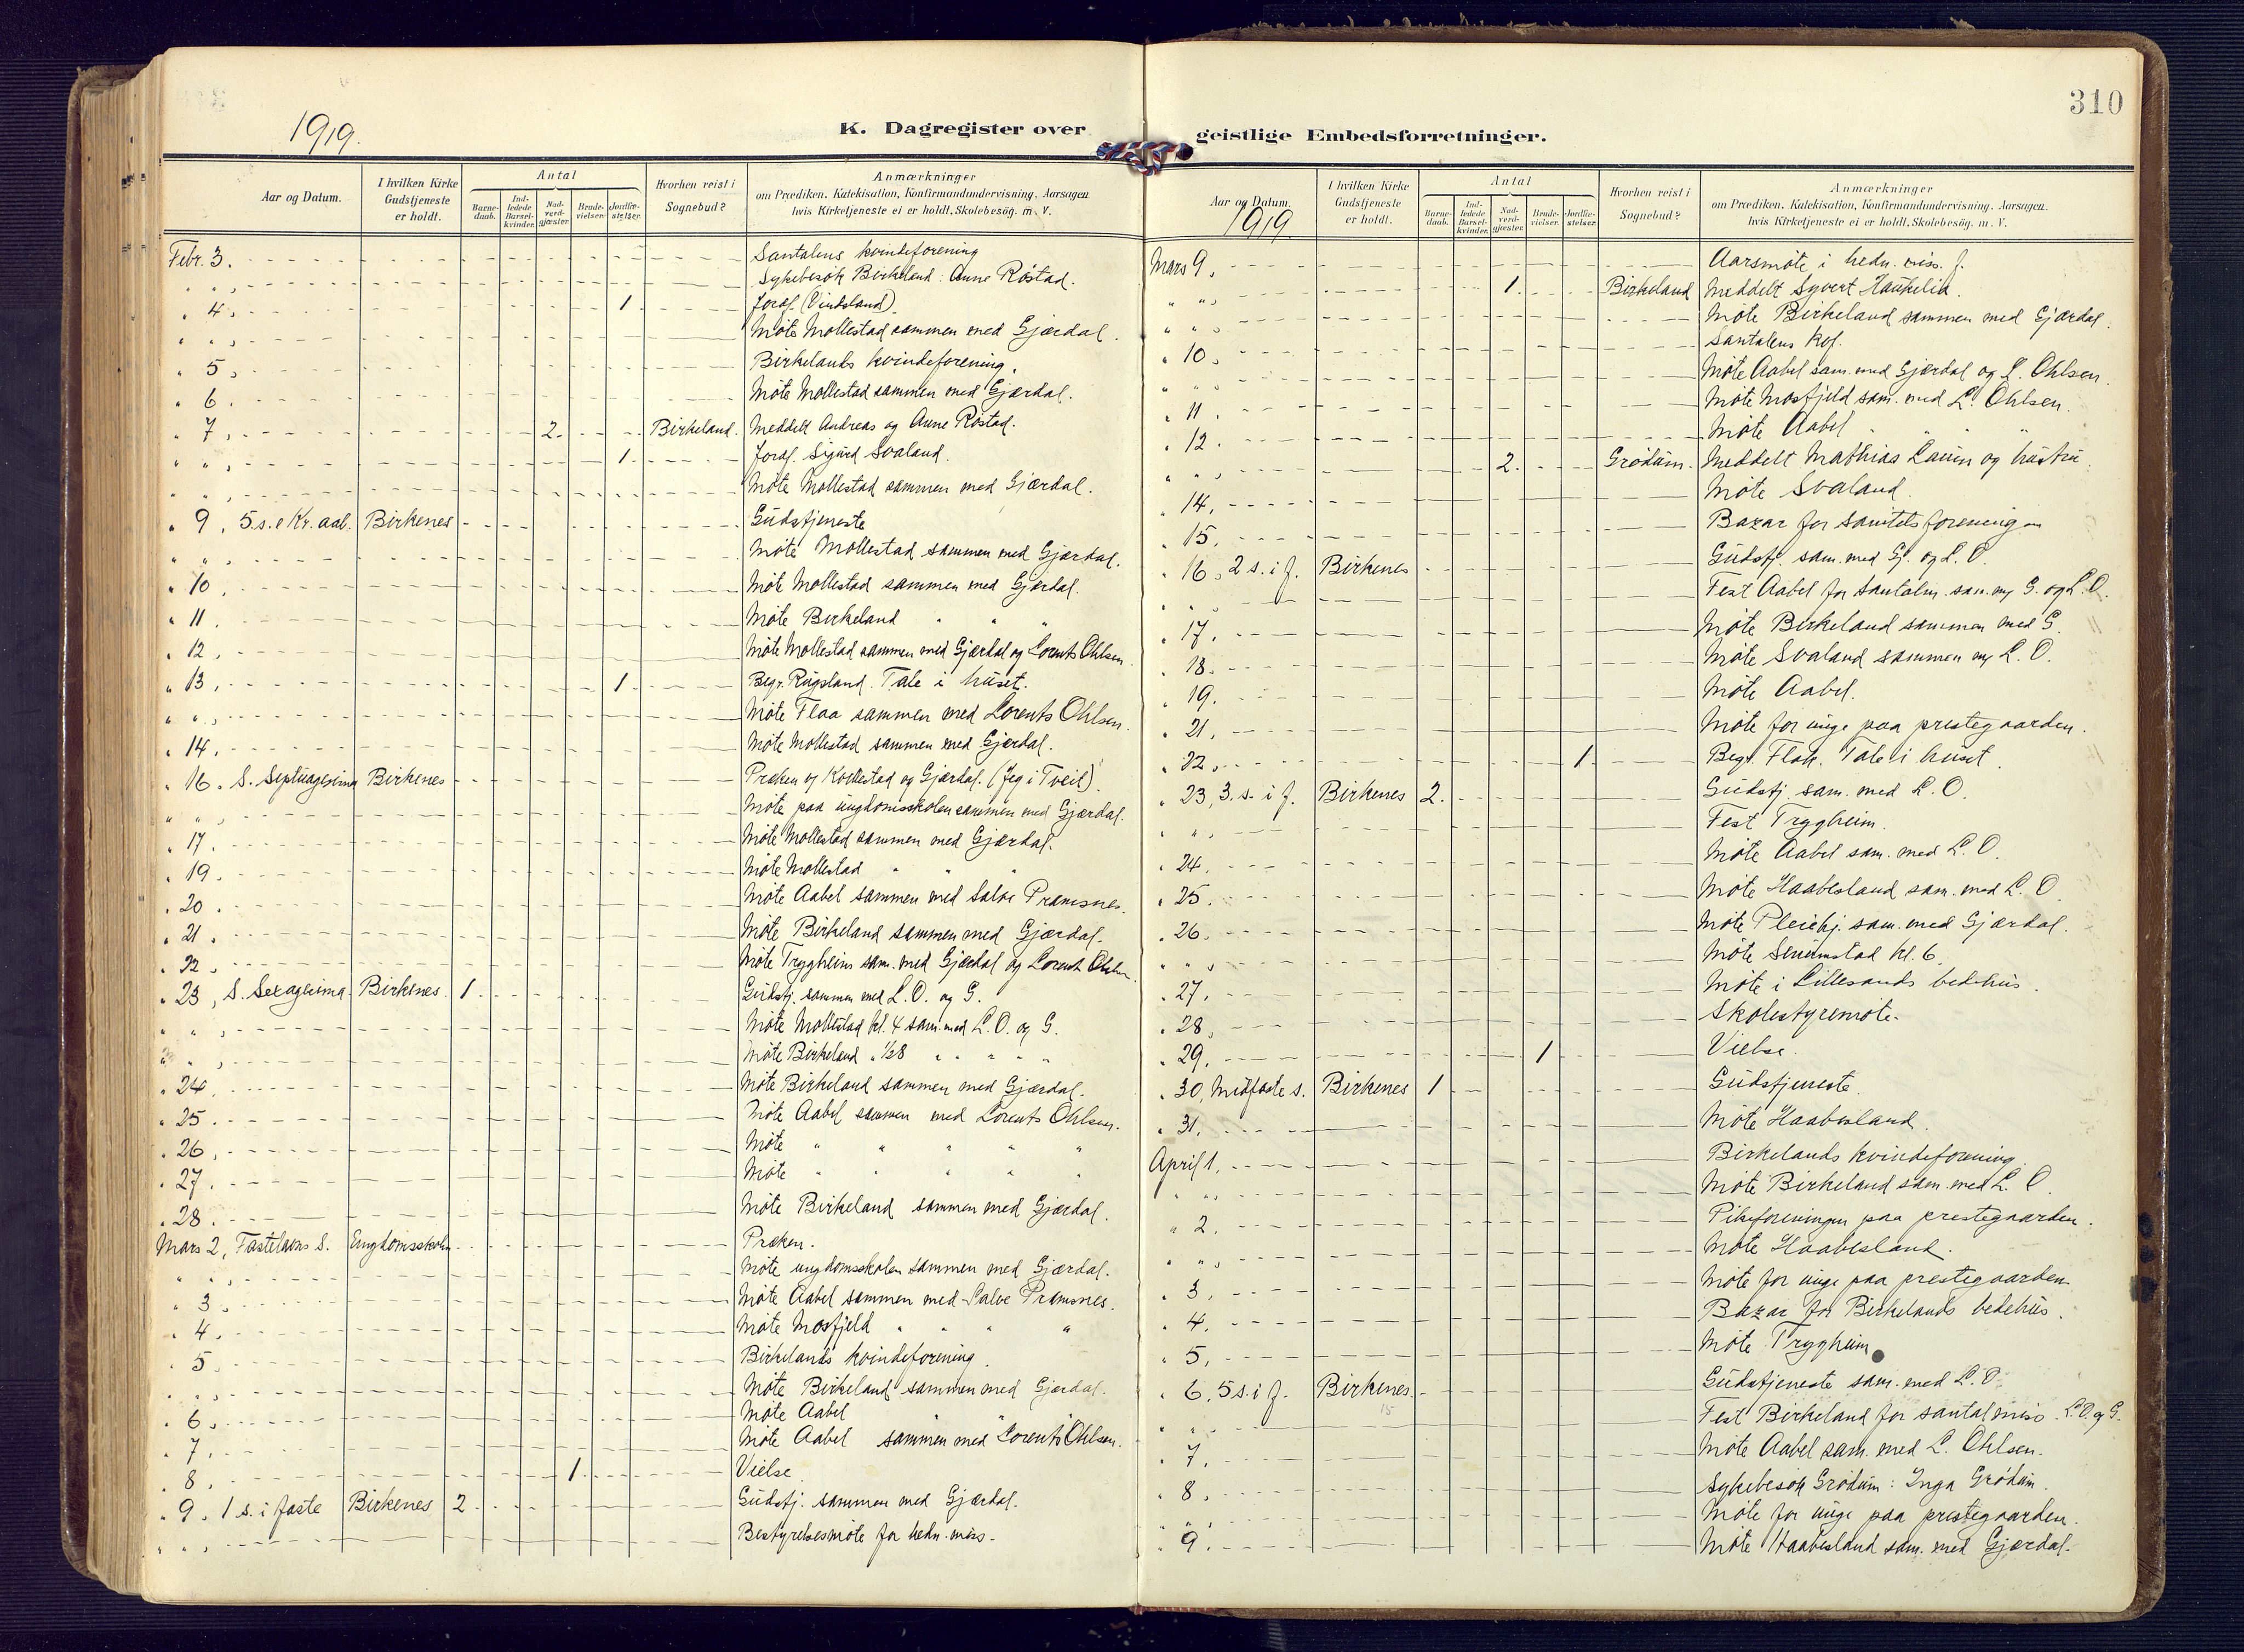 310
1919.
K. Dagregister over geistlige Embedsforretninger.
Aar og Datum.
I hvilken Kirke Gudstjeneste er holdt.
Antal
Barne-daab.
Ind-ledede Barsel-kvinder.
Nad-verd-gjæster.
Brude-vielser.
Jordfæ-stelser.
Hvorhen reist i Sognebud?
Anmærkninger
om Prædiken, Katekisation, Konfirmandundervisning, Aarsagen
hvis Kirketjeneste ei er holdt, Skolebesög. m. V.
Febr. 3. Santalens kvindeforening
" " , Sykebesøk Birkeland: Anne Röstad.
" 4. 1 Jordf. (Vindsland)
" " , Möte Mollestad sammen med Gjærdal.
" 5, Birkelands kvindeforening.
" 6. Möte Mollestad sammen med Gjærdal.
" 7, 2. Birkeland. Meddelt Andreas og Anne Röstad.
" " , 1. Jordf. Sigurd Svaland.
" " , Möte Mollestad sammen med Gjærdal.
" 9, 5. s. e Kr. aab. Birkenes Gudstjeneste
" " , Möte Mollestad sammen med Gjærdal.
" 10, Möte Mollestad sammen med Gjærdal.
" 11. Möte Birkeland " " "
" 12, Möte Mollestad sammen med Gjærdal og Lorents Ohlsen.
" 13, 1. Begr. Rugsland. Tale i huset.
" " , Möte Flaa sammen med Lorents Ohlsen.
" 14. Möte Mollestad sammen med Gjærdal.
" 16. S. Septuagesima Birkenes Præken af Kollestad og Gjærdal. (Jeg i Tveit)
" " , Möte paa ungdomsskolen sammen med Gjærdal.
" 17. Möte Mollestad sammen med Gjærdal.
" 19. Möte Mollestad " " "
" 20. Möte Aabel sammen med Salve Pramsnes.
" 21. Möte Birkeland sammen med Gjærdal.
" 22. Möte Trygheim sam. med Gjærdal og Lorents Ohlsen
" 23, S. Sexagesima Birkenes. 1. Gudstj. sammen med L. O. og G.
" " , Möte Mollestad kl. 4 sam. med L. O. og G.
" " , Möte Birkeland " ½8 " " " " "
" 24, Möte Birkeland sammen med Gjærdal.
" 25. Möte Aabel sammen med Lorents Ohlsen.
" 26, Möte " " " " "
" 27. Möte " " " " "
" 28. Möte Birkeland sammen med Gjærdal.
Mars 2, Fastelavns S. Ungdomsskolen Præken.
" " , Möte ungdomsskolen sammen med Gjærdal.
" 3. Möte Aabel sammen med Salve Pramsnes.
" 4. Möte Mosfjeld " " " "
" 5. Birkelands kvindeforening.
" " , Möte Birkeland sammen med Gjærdal.
" 6. Möte Aabel " " "
" 7. Möte Aabel sammen med Lorents Ohlsen.
" 8. 1. Vielse
" 9. 1 s. i faste Birkenes 2. Gudstj. sammen med Gjærdal.
" " , Bestyrelsesmöte for hedn. miss.
Aar og Datum.
1919
I hvilken Kirke Gudstjeneste er holdt.
Antal
Barne-daab.
Ind-ledede Barsel-kvinder.
Nad-verd-gjæster.
Brude-vielser.
Jordfæ-stelser.
Hvorhen reist i Sognebud?
Anmærkninger
om Prædiken, Katekisation, Konfirmandundervisning, Aarsagen
hvis Kirketjeneste ei er holdt, Skolebesög. m. V.
Mars 9, Aarsmöte i hedn. miss. f.
" " , 1. Birkeland Meddelt Syvert Haukelia.
" " , Möte Birkeland sammen med Gjærdal.
" 10. Santalens kvf.
" " , Möte Aabel sam. med Gjærdal og L. Ohlsen.
" 11. Möte Mosfjeld sam. med L. Ohlsen.
" 12. Möte Aabel " " "
" " , 2. Grödum. Meddelt Mathias Lauen og hustru
" 14, Möte Svaland.
" 15. Bazar for sanitetsforeningen
" 16, 2 s. i f. Birkenes Gudstj. sam. med Gj. og L. O.
" " , Fest Aabel for santalm. sam. m/ G. og L. O.
" 17. Möte Birkeland sammen med G.
" 18. Möte Svaland sammen m/ L. O.
" 19. Möte Aabel.
" 21, Möte for unge paa prestegaarden.
" 22, 1 Begr. Flak. Tale i huset.
" 23, 3. s. i f. Birkenes 2. Gudstj. sam. med L. O.
" " , Fest Trygheim.
" 24. Möte Aabel sam. med L. O.
" 25. Möte Haabesland sam. med L. O.
" 26. Möte Pleiehj. sam. med Gjærdal.
" " , Möte Senumstad kl. 6.
" 27, Möte i Lillesands bedehus.
" 28. Skolestyremöte.
" 29. 1 Vielse.
" 30, Midfaste s. Birkenes 1 Gudstjeneste
" 31. Möte Haabesland.
April 1. Birkelands kvindeforening.
" " , Möte Birkeland sam. med L. O.
" 2. Pikeforeningen paa prestegaarden.
" " , Möte Haabesland.
" 3. Möte for unge paa prestegaarden.
" 4. Bazar for Birkelands bedehus.
" 5, Möte Trygheim
" 6, 5 s. i f. Birkenes. Gudstjeneste sam. med L. O.
" " . Fest Birkeland for santalmiss. L. O. og G.
" 7. Möte Aabel sam. med L. Ohlsen.
" 8. Sykebesøk Grödum: Inga Grödum.
" " , Möte for unge paa prestegaarden.
" 9. Möte Haabesland sam. med Gjærdal.